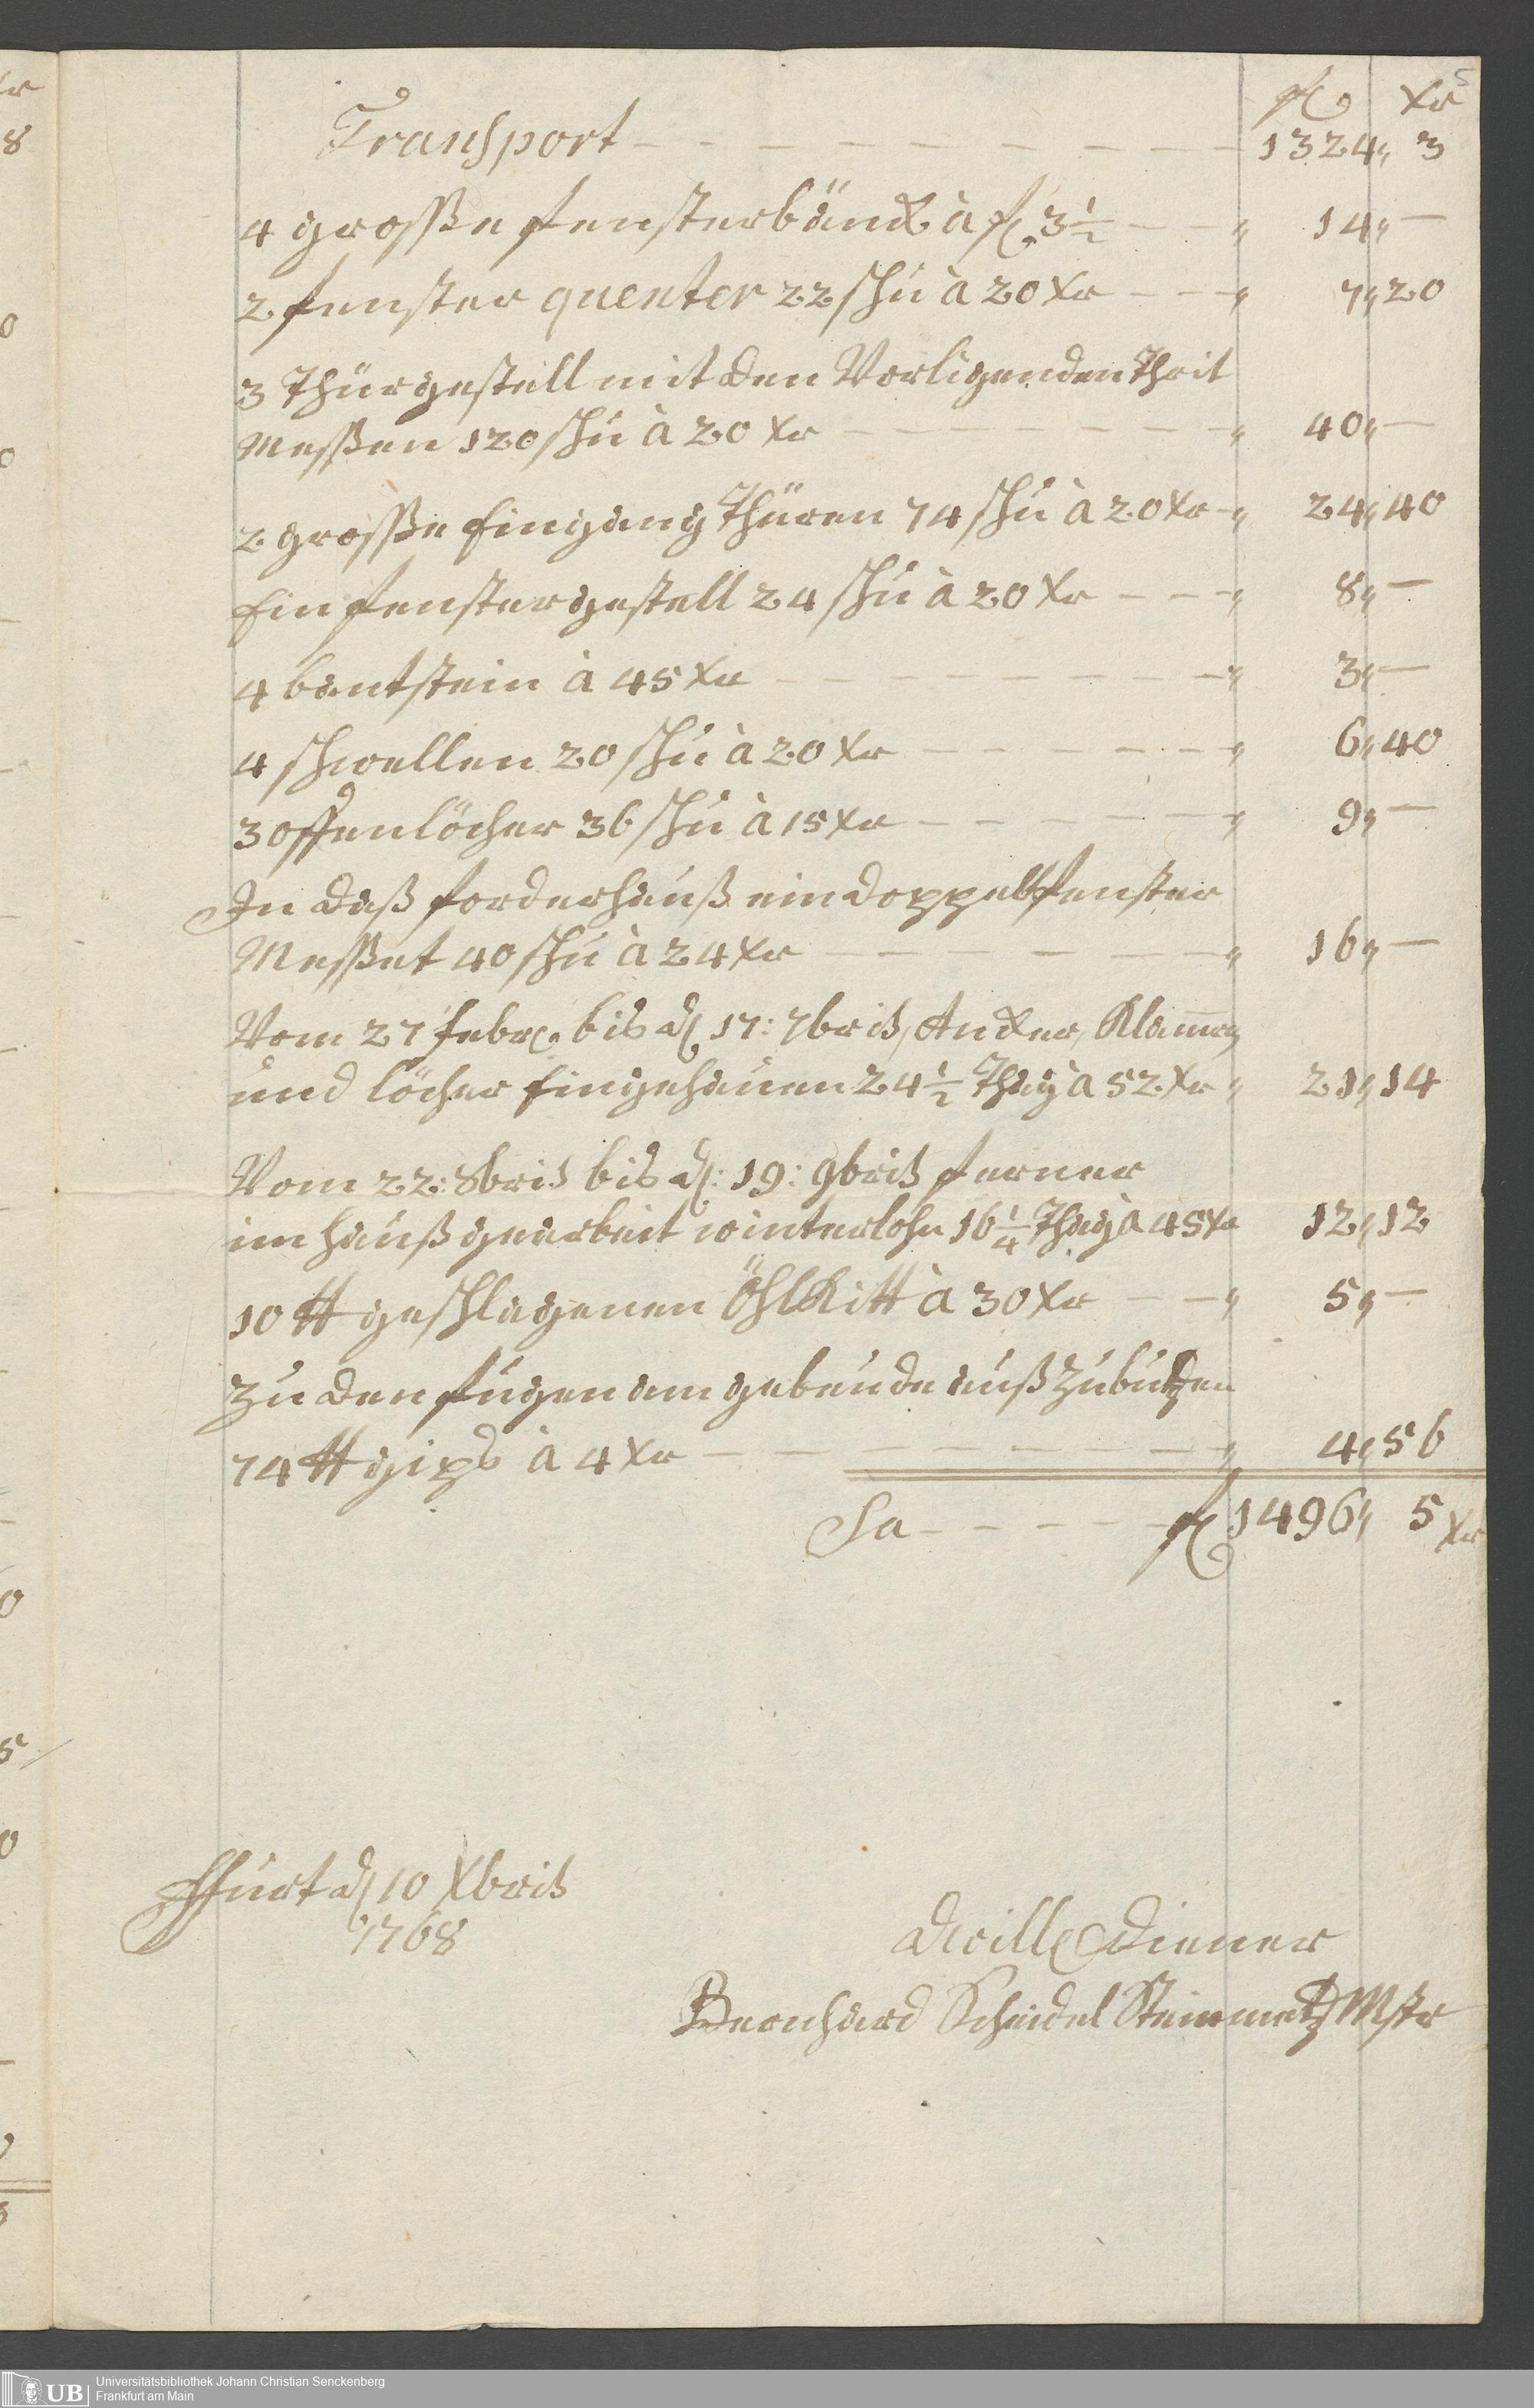 5
fl xr
Transport - - - - - - - - - 1324 „ 3
4 große fensterbänck à fl 3 1/2 - - - „ 14 „ —
2 fenster quenter 22 schu à 20 xr - - - „ 7 „ 20
3 Thürgestell mit den Vorligenden Thrit
Meßen 120 schu à 20 xr - - - - - - - „ 40 „ —
2 große Eingang Thüren 74 schu à 20 xr - „ 24 „ 40
Ein fenstergestell 24 schu à 20 xr - - - „ 8 „ —
4 bantstein à 45 xr - - - - - - - „ 3 „ —
4 schwellen 20 schu à 20 xr - - - - - - „ 6 „ 40
3 offenlöcher 36 schu à 15 xr - - - - - - „ 9 „ —
In daß forderhauß ein doppelt fenster
Meßet 40 schu à 24 xr - - - - - - - „ 16 „ —
Vom 27 febr. bis d 17: 7bris, Ancker, Klamern
und löcher Eingehauen 24 1/2 Thag à 52 xr „ 21 „ 14
Vom 22: 8bris bis d: 19: 9bris ferner
im hauß gearbeit winterlohn 16 1/4 Thag à 45 xr 12 „ 12
10 ℔ geschlagenen Öhlkitt à 30 xr - - - „ 5 „ —
Zu den fugen am gebeude auß Zubutzen
74 ℔ gips à 4 xr - - - - - - - - „ 4 „ 56
Sa - - - - - fl 1496 „ 5 xr
ffurt d 10 Xbris
1768
dwill Diener
Bernhard Scheidel Steinmetz Mstr
UB
Universitätsbibliothek Johann Christian Senckenberg
Frankfurt am Main